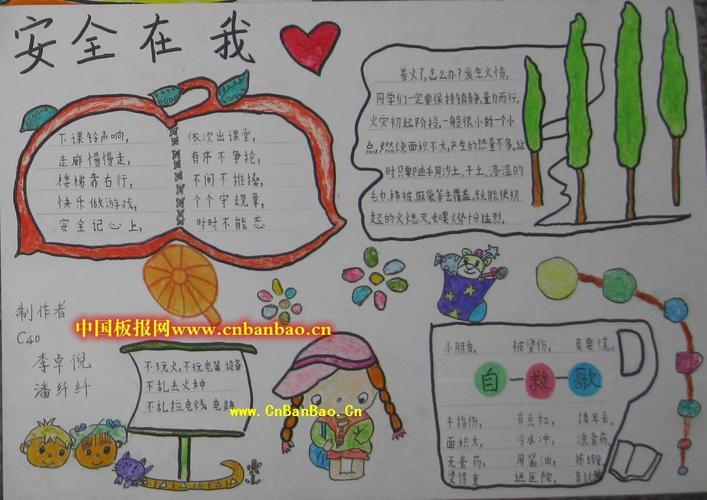 安全在我
下课铃声响，
走廊慢慢走，
楼梯靠右行，
快乐做游戏，
安全记心上，
依次出课堂，
有序不争抢，
不闹不推搡，
个个守规章，
时时不能忘
着火了，怎么办？发生火情，
同学们一定要保持镇静，量力而行。
火灾初起阶段，一般很小的一个小
点，燃烧面积不大，产生的热量不多。这
时只要随手用沙土、干土、浸湿的
毛巾、棉被、麻袋等去覆盖，就能使初
起的火熄灭。如果火势十分猛烈，
制作者
C40
李卓倪
潘纤纤
中国板报网www.cnbanbao.cn
不玩火，不玩电器设备
不乱丢火种
不乱拉电线 电路
www.CnBanBao.Cn
小朋友， 被烫伤， 莫要慌，
自救歌
手指伤， 有点红， 揉耳朵。
面积大， 冷水冲， 涂膏药。
无膏药， 用酱油，
烫得重 送医院